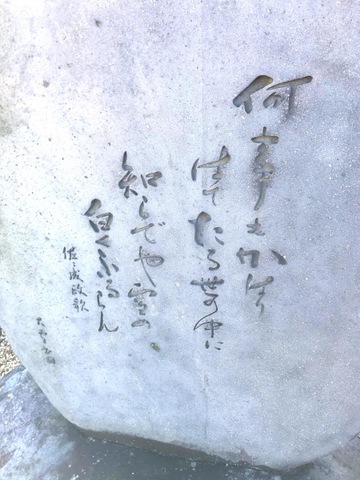 何事もかはり
はてたる世の中に
知らでや雪の
白くふるらん
佐々成政歌